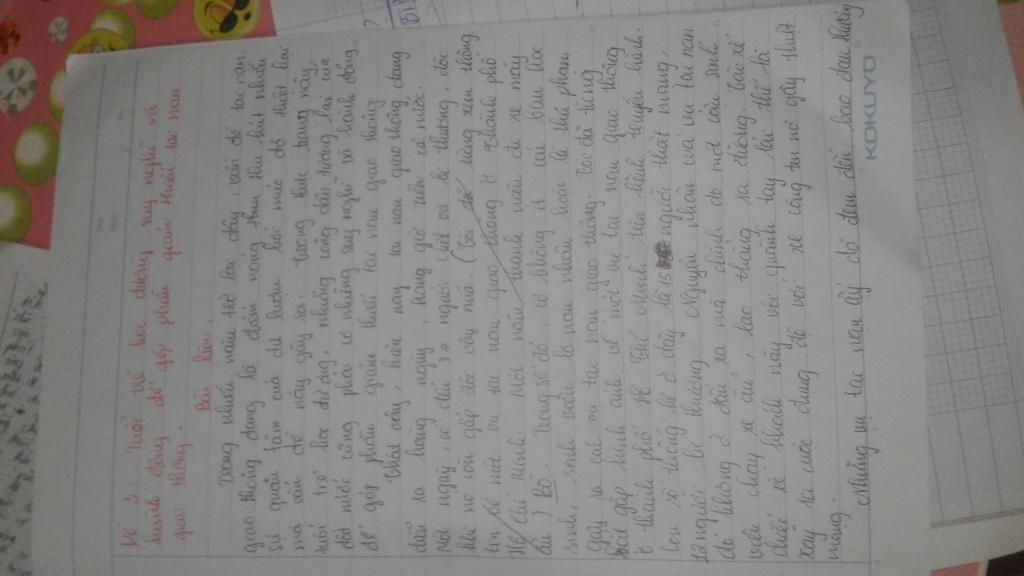 Đề 3: Tuổi trẻ học đường suy nghĩ và
hành động để góp phần giảm thiểu tai nạn
giao thông.
Bài làm
Trong nhiều năm trở lại đây, vấn đề tai nạn
giao thông đang là điểm nóng thu hút nhiều
sự quan tâm của dư luận bởi mức độ thiệt hại
mà vấn đề này gây ra. Trong thực trạng này,
tuổi trẻ học đường, những công dân tương lai của
đất nước cũng phải có những suy nghĩ và hành động
để góp phần giảm thiểu tai nạn giao thông.
Như các bạn thấy, hiện nay tai nạn giao thông đang
diễn ra hàng ngày, hàng giờ trên cả nước.
Mỗi ngày, có đến 30 người chết và bị thương, đôi
khi nó còn gấp đôi vậy nữa. (Tôi đã từng xem thông
tin về một vụ tai nạn giao thông ở thành phố
Hồ Chí Minh. Một nam thanh niên đi xe máy
đã) Bỏ. Trong số đó, có không ít các bạn học
sinh, sinh viên là nạn nhân hoặc là thủ phạm
gây ra các vụ tai nạn giao thông. Tôi đã từng
bắt gặp hình ảnh về một vụ tai nạn giao thông
ở thành phố Hồ Chí Minh trên kênh truyền hình.
Con số thống kê ở đây là 15 người thiệt mạng,
12 người bị thương. Nguyên nhân của vụ tai nạn
đó không ở đâu xa mà chính do một cậu sinh
viên chạy xe ẩu, lao thẳng ra đường. Tài xế
chiếc xe khách này vội quành tay lái thế rồi
xảy ra cuộc đụng độ với xe công ten nơ gây thiệt
mạng.
Những vụ tai nạn ấy đã đem đến bao đau thương
KOKUYO